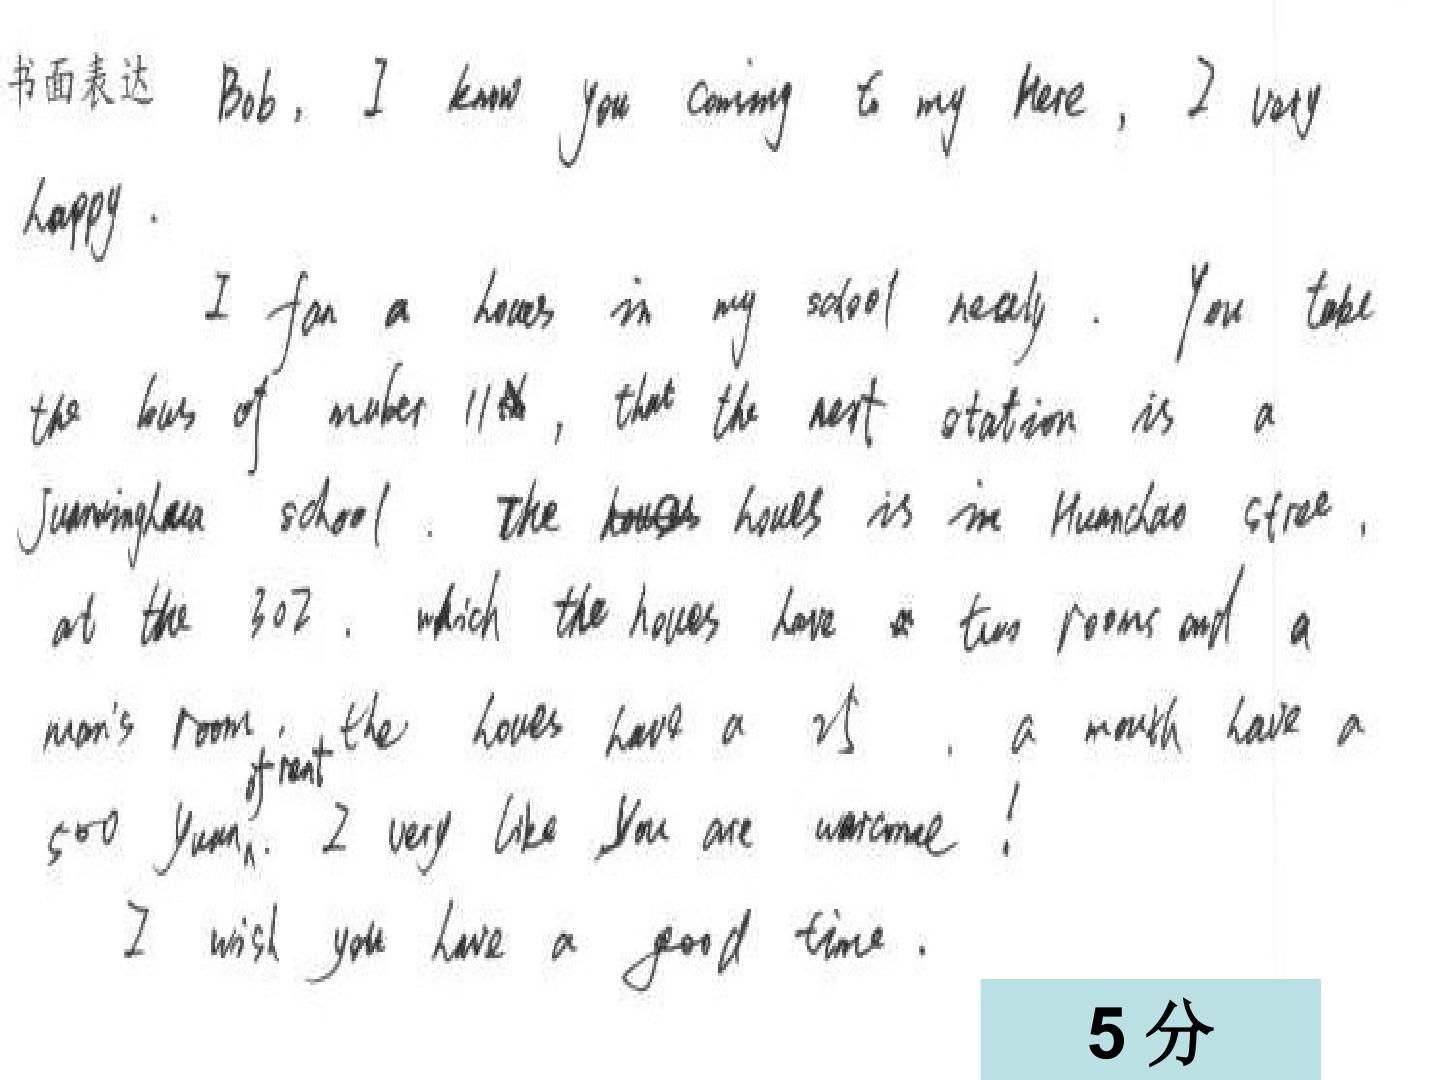 书面表达 Bob, I know you coming to my Here, I very
happy.
I fan a houes in my school nearly. You take
the bus of nuber 11th, that the next station is a
school. The houes houes is in Huanchao stree,
at the 302. which the houes have a two rooms and a
man's room, the houes have a 25. a mouth have a
of rent
500 Yuan. I very like You are warcome!
I wish you have a good time.
5 分